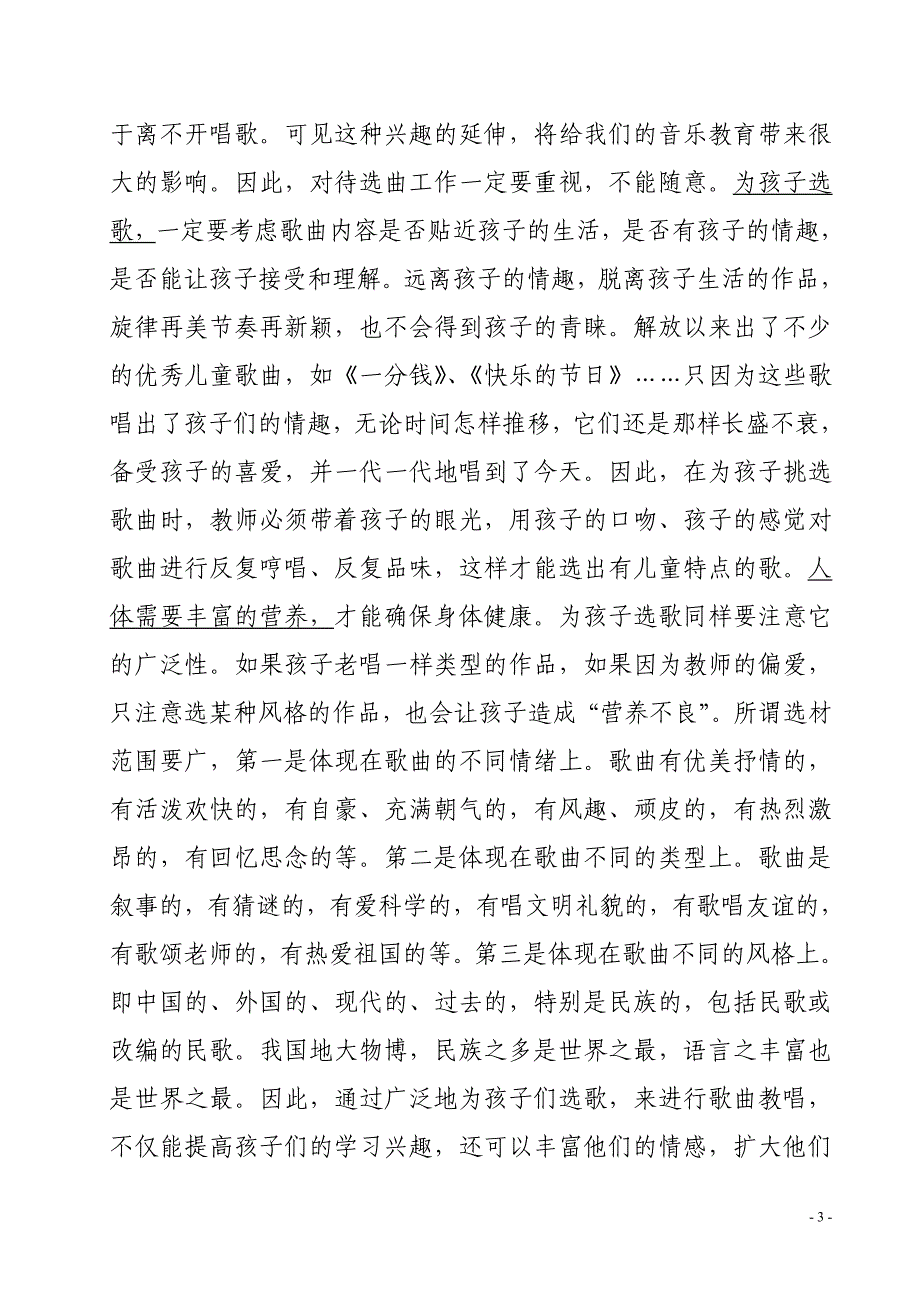 于离不开唱歌。可见这种兴趣的延伸，将给我们的音乐教育带来很
大的影响。因此，对待选曲工作一定要重视，不能随意。为孩子选
歌，一定要考虑歌曲内容是否贴近孩子的生活，是否有孩子的情趣，
是否能让孩子接受和理解。远离孩子的情趣，脱离孩子生活的作品，
旋律再美节奏再新颖，也不会得到孩子的青睐。解放以来出了不少
的优秀儿童歌曲，如《一分钱》、《快乐的节日》……只因为这些歌
唱出了孩子们的情趣，无论时间怎样推移，它们还是那样长盛不衰，
备受孩子的喜爱，并一代一代地唱到了今天。因此，在为孩子挑选
歌曲时，教师必须带着孩子的眼光，用孩子的口吻、孩子的感觉对
歌曲进行反复哼唱、反复品味，这样才能选出有儿童特点的歌。人
体需要丰富的营养，才能确保身体健康。为孩子选歌同样要注意它
的广泛性。如果孩子老唱一样类型的作品，如果因为教师的偏爱，
只注意选某种风格的作品，也会让孩子造成“营养不良”。所谓选材
范围要广，第一是体现在歌曲的不同情绪上。歌曲有优美抒情的，
有活泼欢快的，有自豪、充满朝气的，有风趣、顽皮的，有热烈激
昂的，有回忆思念的等。第二是体现在歌曲不同的类型上。歌曲是
叙事的，有猜谜的，有爱科学的，有唱文明礼貌的，有歌唱友谊的，
有歌颂老师的，有热爱祖国的等。第三是体现在歌曲不同的风格上。
即中国的、外国的、现代的、过去的，特别是民族的，包括民歌或
改编的民歌。我国地大物博，民族之多是世界之最，语言之丰富也
是世界之最。因此，通过广泛地为孩子们选歌，来进行歌曲教唱，
不仅能提高孩子们的学习兴趣，还可以丰富他们的情感，扩大他们
- 3 -